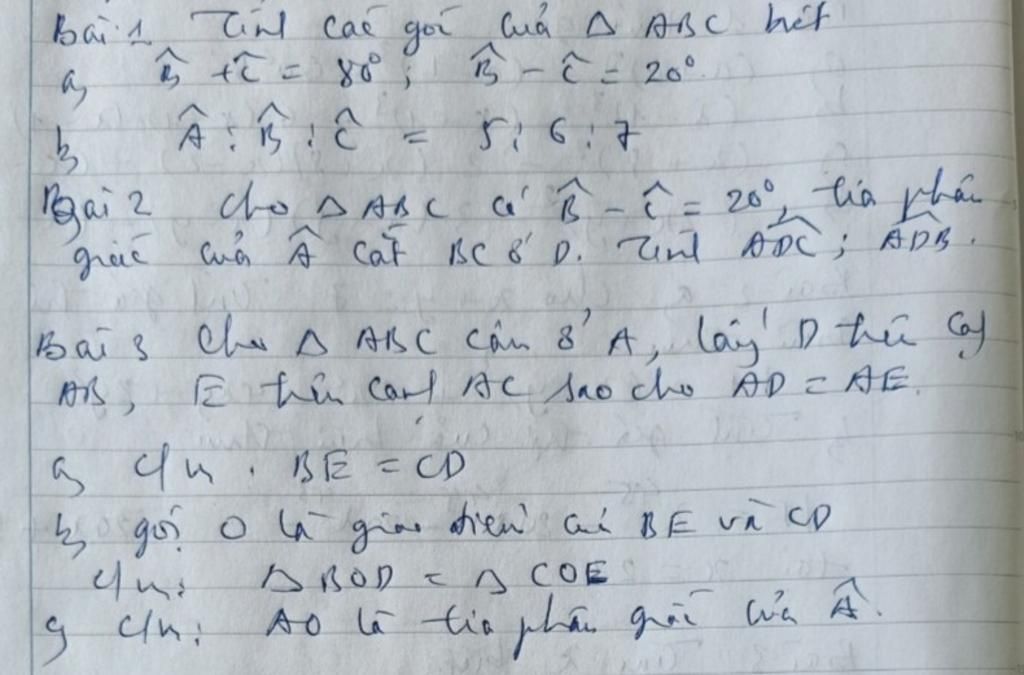 Bài 1 Tính các góc của Δ ABC biết
a, B̂ + Ĉ = 80°; B̂ - Ĉ = 20°.
b, Â : B̂ : Ĉ = 5 : 6 : 7
Bài 2 Cho Δ ABC có B̂ - Ĉ = 20°, tia phân
giác của Â cắt BC ở D. Tính ADC; ADB.
Bài 3 Cho Δ ABC cân ở A, lấy D trên cạnh
AB, E trên cạnh AC sao cho AD = AE.
a, C/m. BE = CD
b, gọi O là giao điểm của BE và CD
C/m: Δ BOD = Δ COE
c, C/m: AO là tia phân giác của Â.